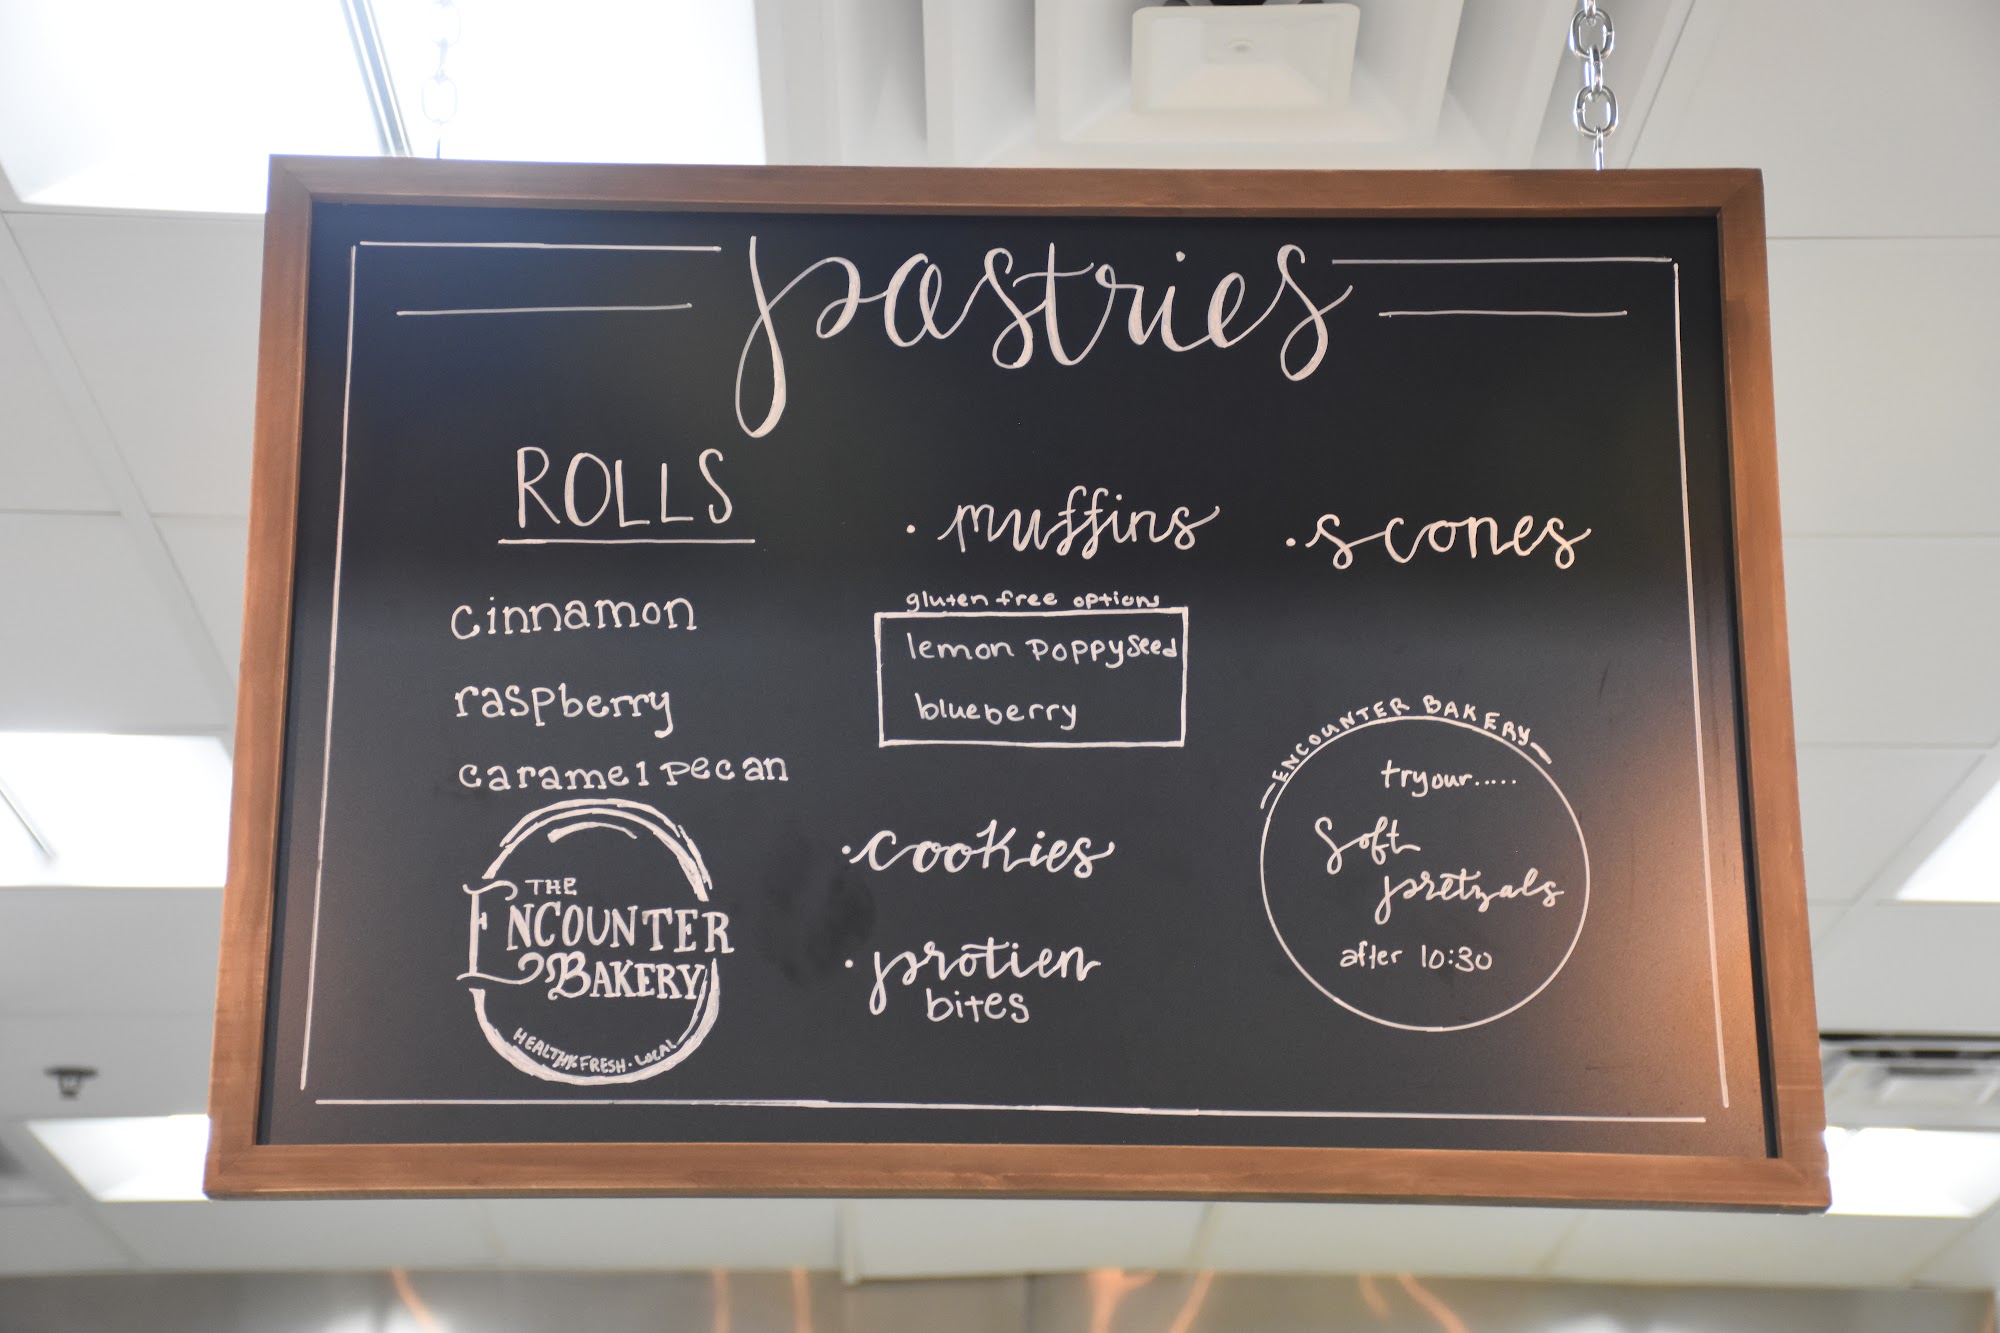 pastries
ROLLS
cinnamon
raspberry
caramel pecan
THE
ENCOUNTER
BAKERY
HEALTHY. FRESH. LOCAL
· muffins
gluten free options
lemon poppyseed
blueberry
· cookies
· protien
bites
· scones
ENCOUNTER BAKERY
try our.....
Soft
pretzals
after 10:30